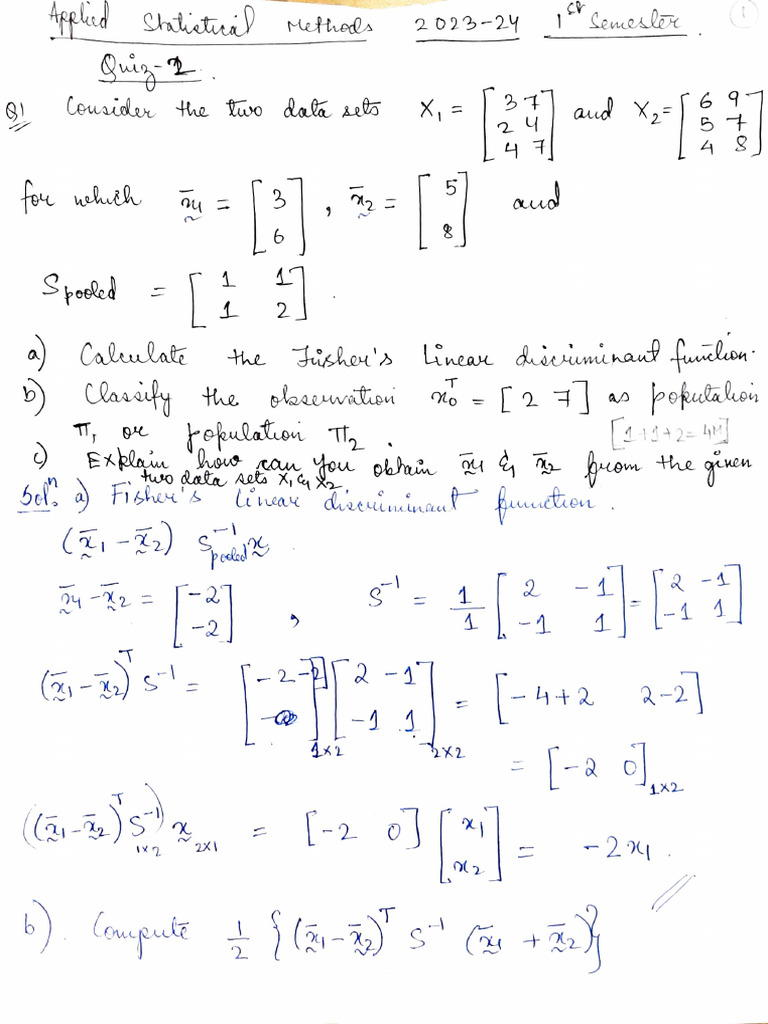 Applied Statistical Methods 2023-24 1st Semester. 1
Quiz-2.
Q1 Consider the two data sets X₁ = [3 7; 2 4; 4 7] and X₂ = [6 9; 5 7; 4 8]
for which x̄₁ = [3; 6], x̄₂ = [5; 8] and
Spooled = [1 1; 1 2].
a) Calculate the Fisher's Linear discriminant function.
b) Classify the observation x₀ᵀ = [2 7] as population
π₁ or population π₂. [1+1+2=4M]
c) Explain how can you obtain x̄₁ & x̄₂ from the given
two data sets X₁ & X₂.
Solⁿ. a) Fisher's linear discriminant function.
(x̄₁ - x̄₂) S⁻¹pooled x.
x̄₁ - x̄₂ = [-2; -2], S⁻¹ = 1/1 [2 -1; -1 1] = [2 -1; -1 1]
(x̄₁ - x̄₂)ᵀ S⁻¹ = [-2 -2]1×2 [2 -1; -1 1]2×2 = [-4+2 2-2]
= [-2 0]1×2
((x̄₁ - x̄₂)ᵀ S⁻¹)1×2 x2×1 = [-2 0] [x₁; x₂] = -2x₁.
b). Compute 1/2 {(x̄₁ - x̄₂)ᵀ S⁻¹ (x̄₁ + x̄₂)}